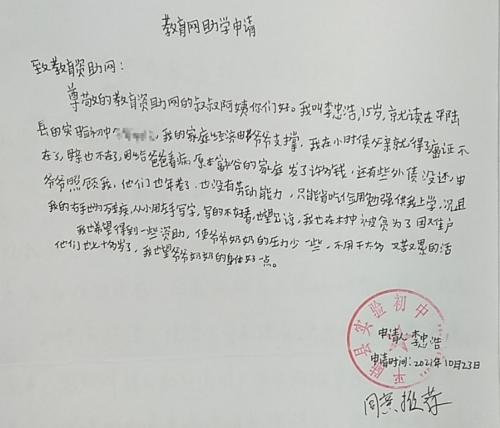 教育网助学申请
致教育资助网：
尊敬的教育资助网的叔叔阿姨你们好。我叫李忠浩，15岁，京就读在平陆
县的实验初中，我的家庭经资由爷爷支撑，我在小时侯父亲就得了癌证不
在了，也不在了，因给爸爸看病，原本富谷的家庭 发了许多钱，还有些外债没还，由
爷爷照顾我，他们也年老了，也没有劳动能力，只能省吃信用勉强供我上学，况且
我的右手地为残疾，从小用左手写字，写的不好看，也望见谅，我也在村中被负为了因难户
我希望得到一些资助，使爷爷奶奶的压力少一些，不用干太多 又苦又累的活
他们也七十多岁了，我也望爷爷奶奶的身体好一点。
平陆县实验初中
申请人：李忠浩
申请时间：2021年10月23日
同意推荐